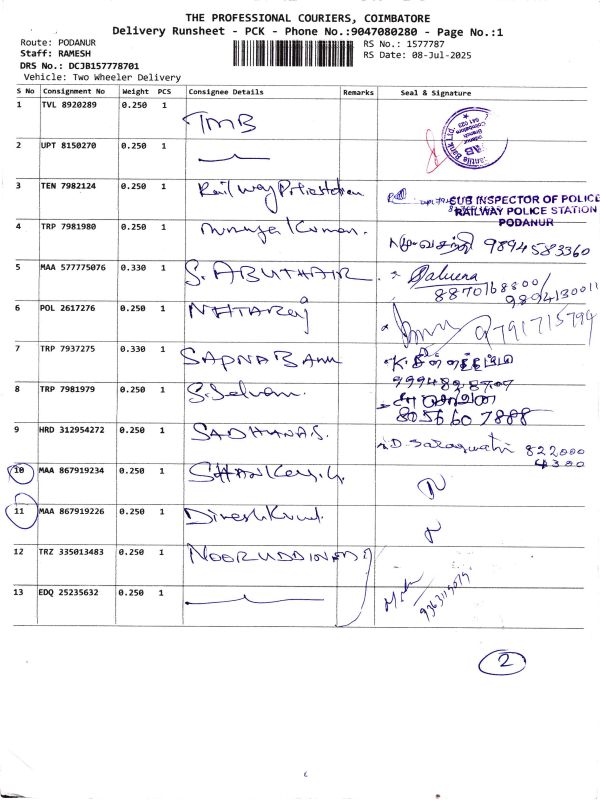 THE PROFESSIONAL COURIERS, COIMBATORE
Delivery Runsheet - PCK - Phone No.:9047080280 - Page No.:1
Route: PODANUR
Staff: RAMESH
DRS No.: DCJB157778701
Vehicle: Two Wheeler Delivery
RS No.: 1577787
RS Date: 08-Jul-2025
S No Consignment No Weight PCS Consignee Details Remarks Seal & Signature
1 TVL 8920289 0.250 1 TMB
2 UPT 8150270 0.250 1
3 TEN 7982124 0.250 1 Railway
SUB INSPECTOR OF POLICE
RAILWAY POLICE STATION
PODANUR
4 TRP 7981980 0.250 1 Kumar. 9894583360
5 MAA 577775076 0.330 1 S. ABUTHAIR
8870168800/
9894130011
6 POL 2617276 0.250 1 NATARAJ 9791715794
7 TRP 7937275 0.330 1 SAPNA BANU
9994828707
8 TRP 7981979 0.250 1 S. Selvam.
8056607888
9 HRD 312954272 0.250 1 SADHANA S. D. Saraswathi 822000
4300
10 MAA 867919234 0.250 1
11 MAA 867919226 0.250 1 Dinesh Kumar
12 TRZ 335013483 0.250 1 NOORUDDIN
13 EDQ 25235632 0.250 1
2